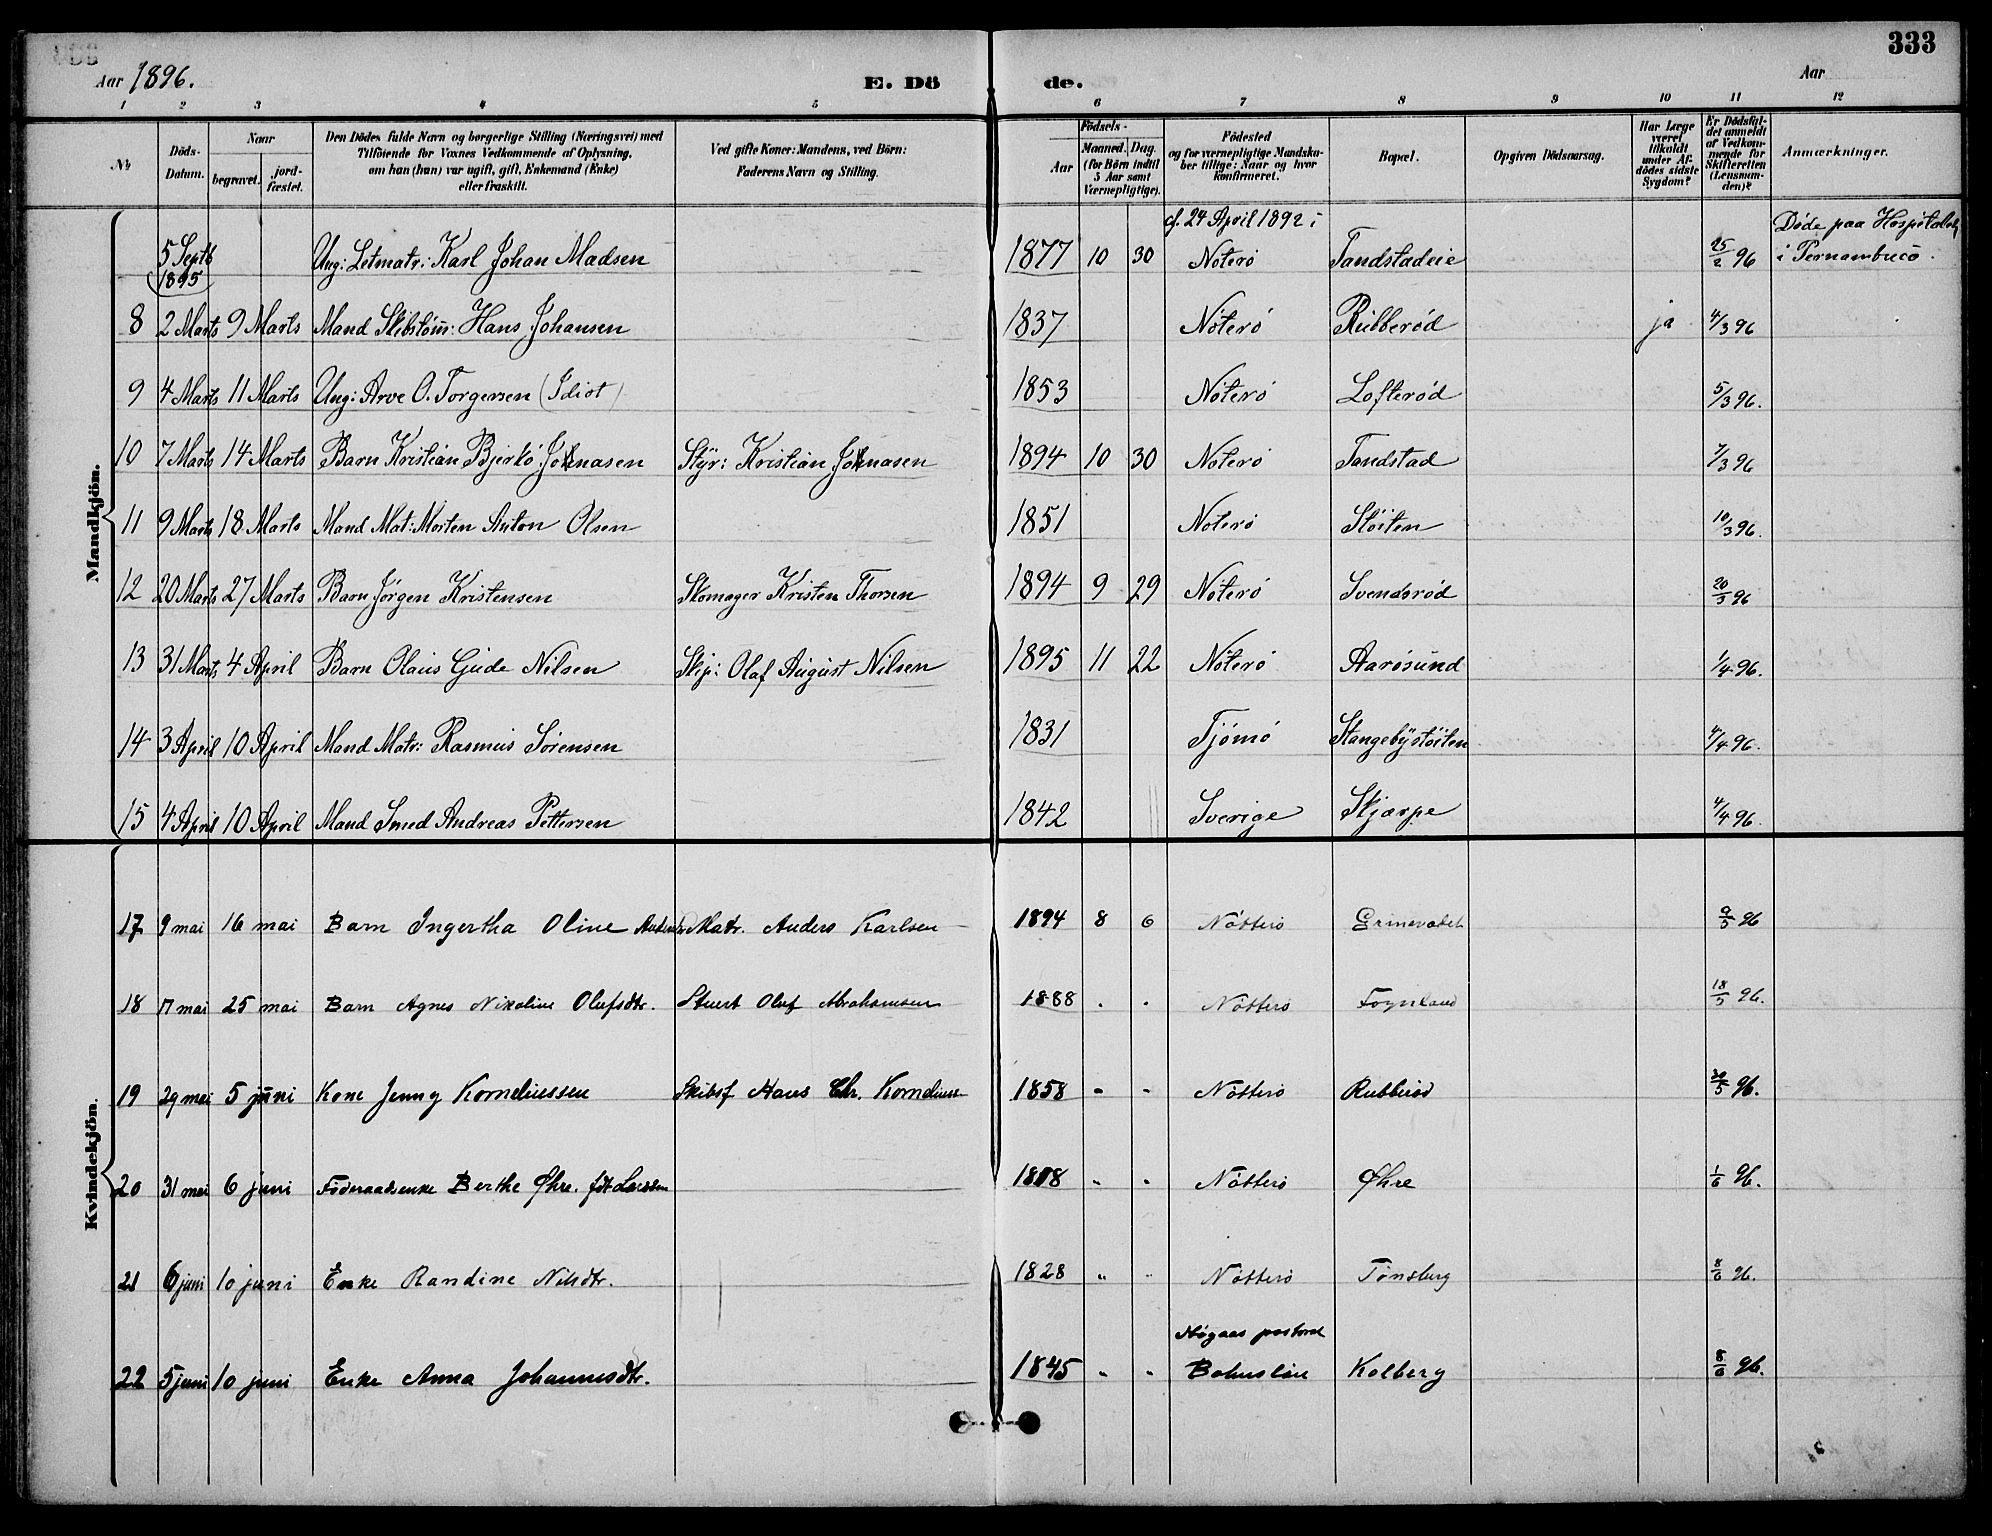 333
Aar 1896. E. Dö de. Aar
1 2 3 4 5 6 7 8 9 10 11 12
Nr Döds-Datum. Naar begravet. jord-fæstet. Den Dödes fulde Navn og borgerlige Stilling (Næringsvei) med Tilföiende for Voxnes Vedkommende af Oplysning, om han (hun) var ugift, gift, Enkemand (Enke) eller fraskilt. Ved gifte Koner: Mandens, ved Börn: Faderens Navn og Stilling. Födsels- Aar Maaned. Dag. (for Börn indtil 5 Aar samt Værnepligtige). Födested og for værnepligtige Mandskaber tillige: Naar og hvor konfirmeret. Bopæl. Opgiven Dödsaarsag. Har Læge været tilkaldt under Afdödes sidste Sygdom? Er Dödsfaldet anmeldt af Vedkommende for Skifteretten (Lensmanden)? Anmærkninger.
Mandkjön.
5 Septb 1895 Ung: Letmatr: Karl Johan Madsen 1877 10 30 cf. 24 April 1892 i Noterö Tandstadeie 25/2 96 Döde paa Hospitalet i Pernambuco.
8 2 Marts 9 Marts Mand Skibstöm: Hans Johansen 1837 Nöterö Rubberöd ja 4/3 96
9 4 Marts 11 Marts Ung: Arve O. Torgersen (Idiot) 1853 Nöterö Lofteröd 5/3 96.
10 7 Marts 14 Marts Barn Kristian Bjerkö Johnasen Styr: Kristian Johnasen 1894 10 30 Noterö Tandstad 7/3 96
11 9 Marts 18 Marts Mand Mat: Morten Anton Olsen 1851 Noterö Stöiten 10/3 96.
12 20 Marts 27 Marts Barn Jörgen Kristensen Skomager Kristen Thorsen 1894 9 29 Nöterö Svendsröd 20/3 96
13 31 Marts 4 April Barn Olaus Gude Nilsen Skip: Olaf August Nilsen 1895 11 22 Nöterö Aarösund 1/4 96.
14 3 April 10 April Mand Matr: Rasmus Sörensen 1831 Tjömö Stangebystöiten 4/4 96.
15 4 April 10 April Mand Smed Andreas Pettersen 1842 Sverige Skjærpe 4/4 96.
Kvindekjön.
17 9 mai 16 mai Barn Ingertha Oline Matr. Anders Karlsen 1894 8 6 Nötterö 9/5 96
18 17 mai 25 mai Barn Agnes Nikoline Olufsdtr. Stuert Oluf Abrahamsen 1888 . . Nötterö Föynland 18/5 96.
19 29 mai 5 juni Kone Jenny Korneliussen Skibsf Hans Chr. Korneliuss 1858 " " Nötterö Rubberöd 30/5 96.
20 31 mai 6 juni Föderaadsenke Berthe Øhre. fdt Larsen 1808 " " Nötterö Øhre 1/6 96.
21 6 juni 10 juni Enke Randine Nilsdtr. 1828 " " Nötterö Tönsberg 8/6 96.
22 5 juni 10 juni Enke Anna Johannesdtr. 1845 " " Bohuslän Kolberg 8/6 96.